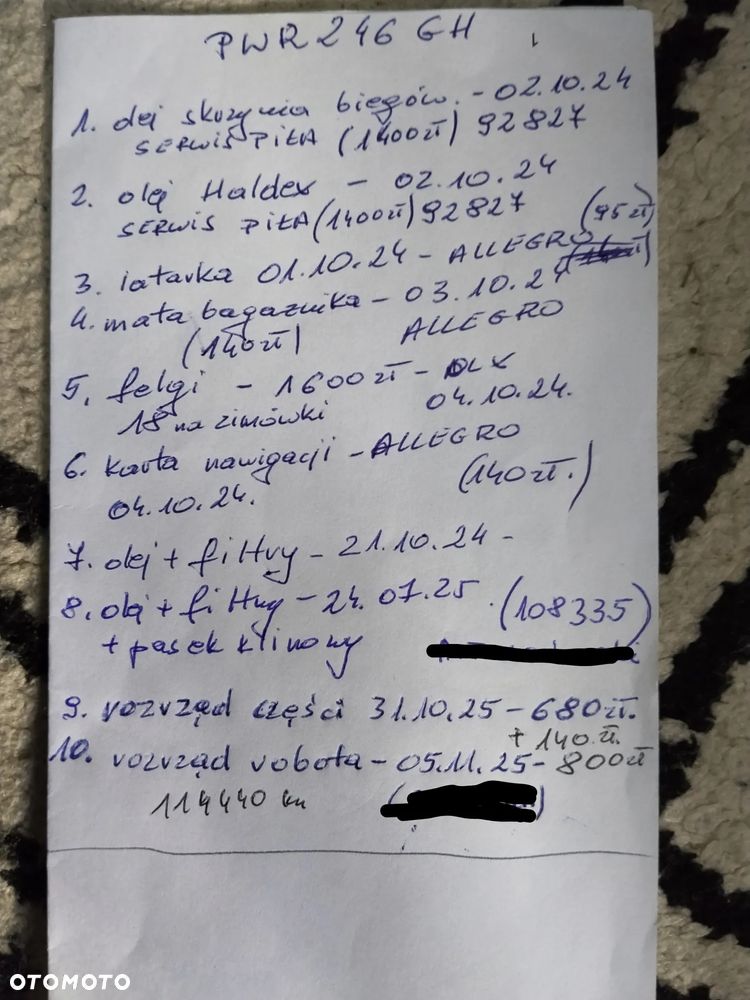 PWR 246 GH
1. olej skrzynia biegów. - 02.10.24
SERWIS PIŁA (1400zł) 92827
2. olej Haldex - 02.10.24
SERWIS PIŁA (1400zł) 92827 (95 zł)
3. latarka 01.10.24 - ALLEGRO
4. mata bagażnika - 03.10.24
(140zł) ALLEGRO
5. felgi - 1600zł - OLX
18 na zimówki 04.10.24.
6. karta nawigacji - ALLEGRO
04.10.24. (140zł.)
7. olej + filtry - 21.10.24 -
8. olej + filtry - 24.07.25. (108335)
+ pasek klinowy
9. rozrząd części 31.10.25 - 680zł.
+ 140 zł.
10. rozrząd robota - 05.11.25 - 800zł
114440 km
OTOMOTO